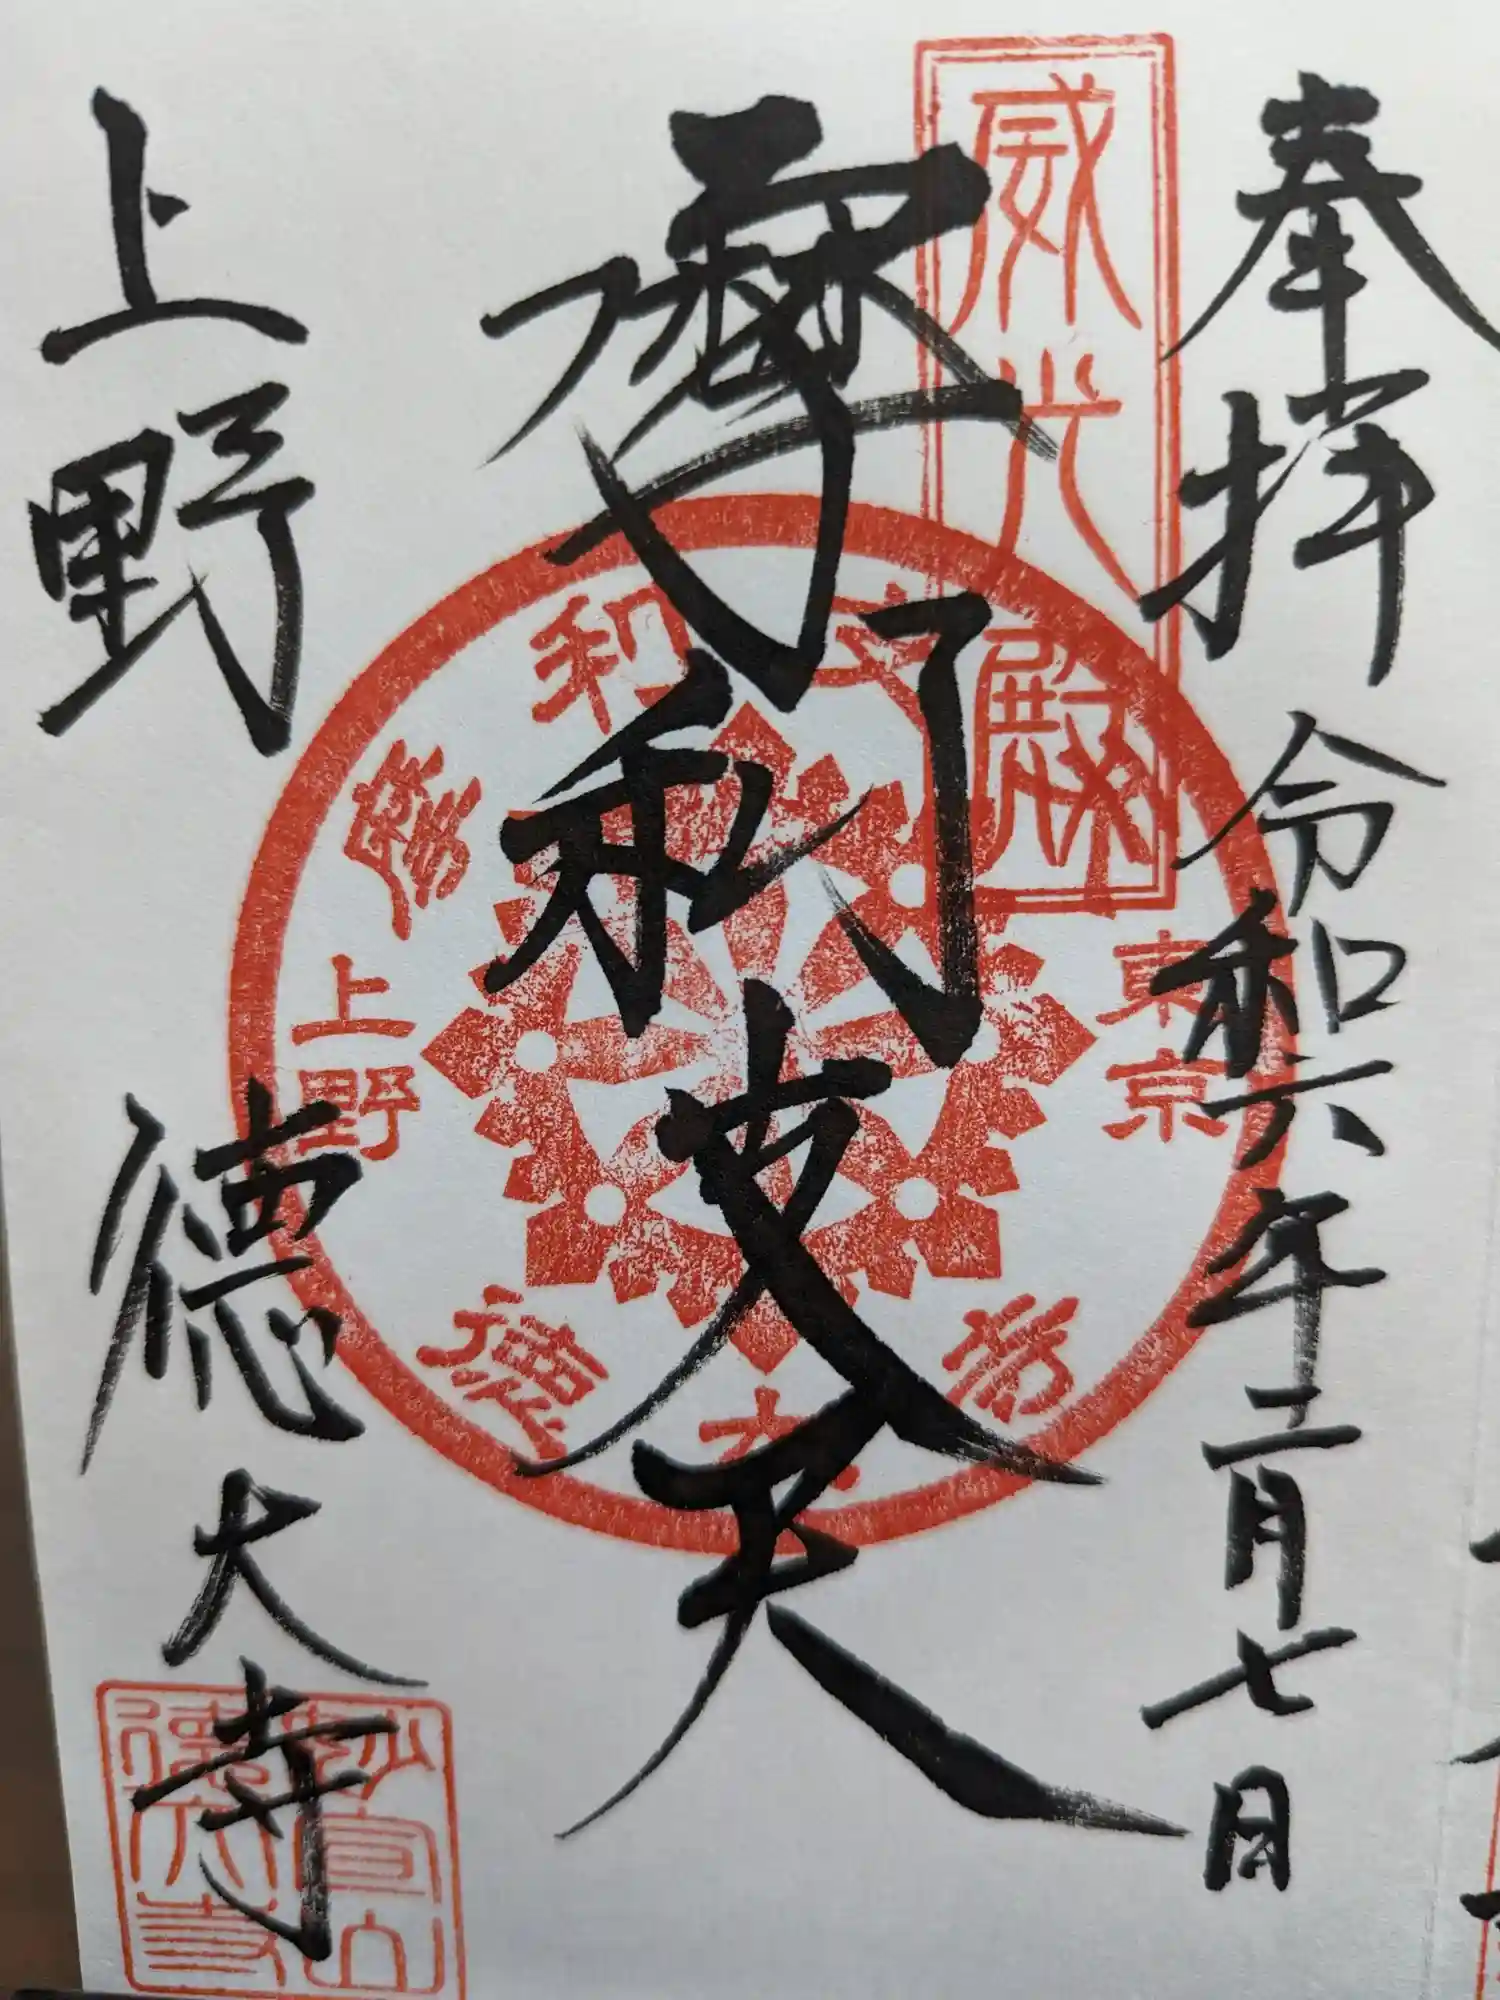 奉拝 令和六年二月七日
威光殿
摩利支天
上野 徳大寺
東京
上野
摩利支
徳大
妙宣山
徳大寺